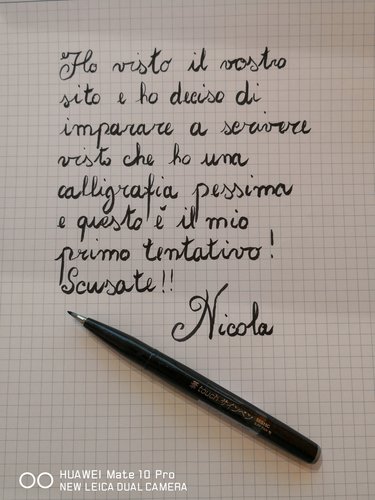 Ho visto il vostro
sito e ho deciso di
imparare a scrivere
visto che ho una
calligrafia pessima
e questo è il mio
primo tentativo!
Scusate!!
Nicola
touch サインペン
HUAWEI Mate 10 Pro
NEW LEICA DUAL CAMERA